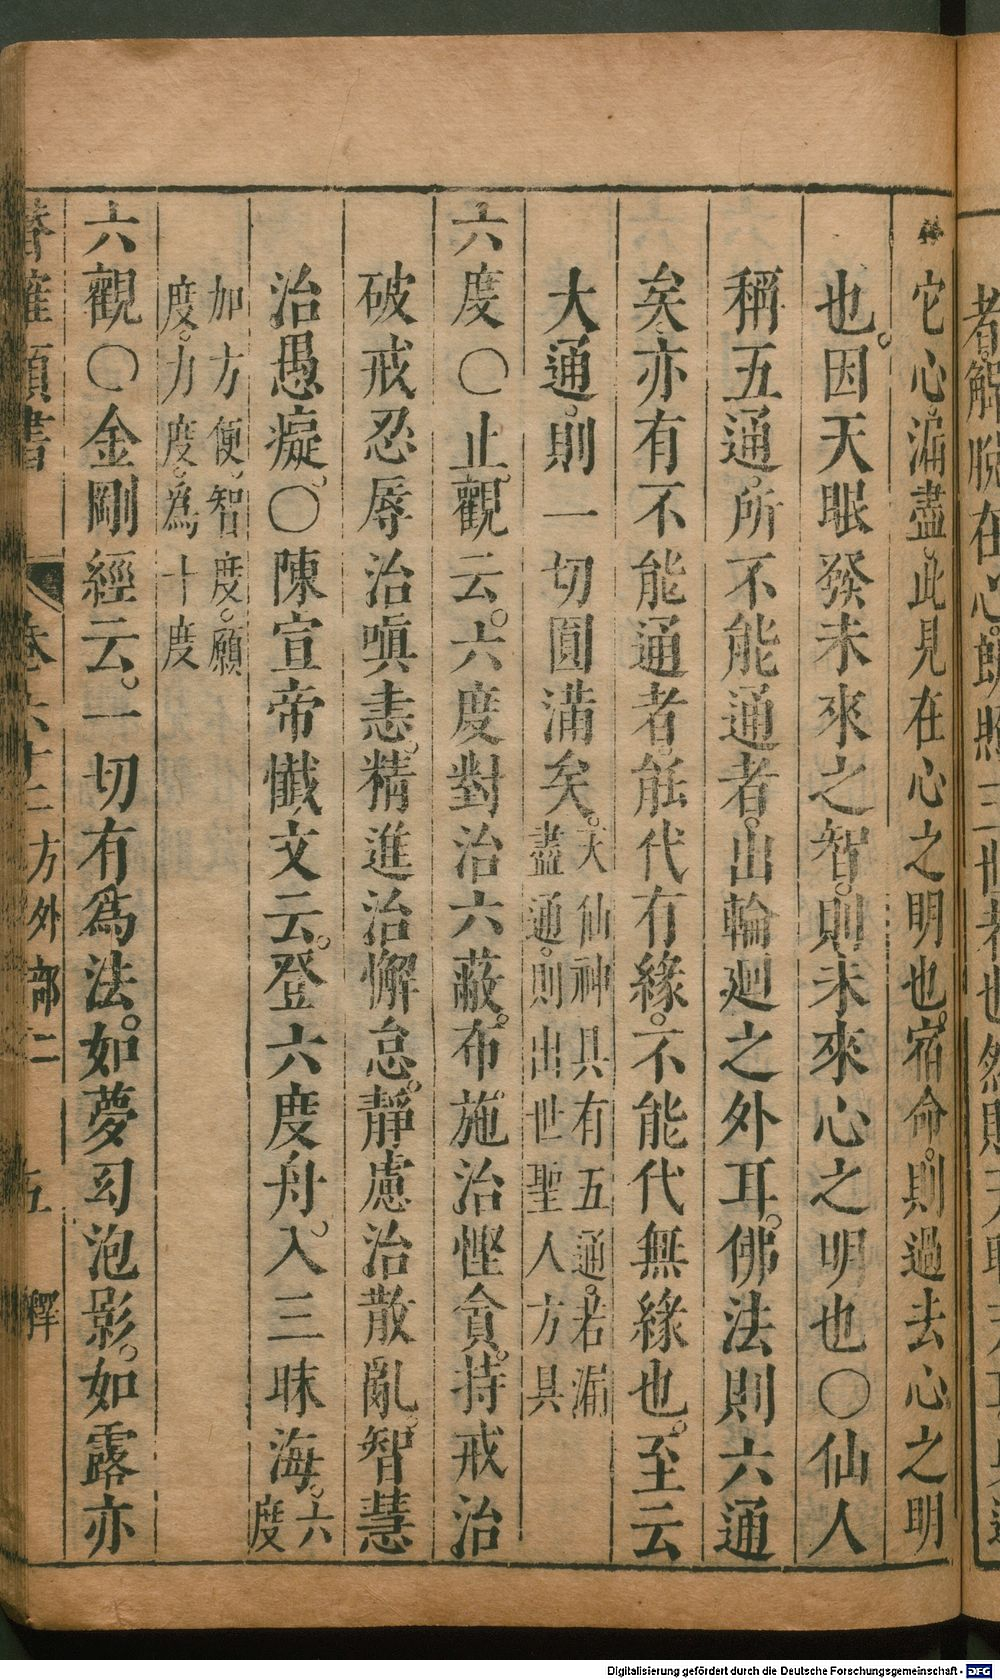 它心漏盡此見在心之明也宿命則過去心之明
也因天眼發未來之智則未來心之明也〇仙人
稱五通所不能通者出輪廻之外耳佛法則六通
矣亦有不能通者能代有緣不能代無緣也至云
大通則一切圓滿矣天仙神具有五通若漏
盡通則出世聖人方具
六度〇止觀云六度對治六蔽布施治慳貪持戒治
破戒忍辱治嗔恚精進治懈怠靜慮治散亂智慧
治愚癡〇陳宣帝懺文云登六度舟入三昧海六
度
加方便智度願
度力度為十度
六觀〇金剛經云一切有爲法如夢幻泡影如露亦
潛確類書 卷六十二方外部二 五 釋
者解脫在心朗照三世者也然則
Digitalisierung gefördert durch die Deutsche Forschungsgemeinschaft - DFG